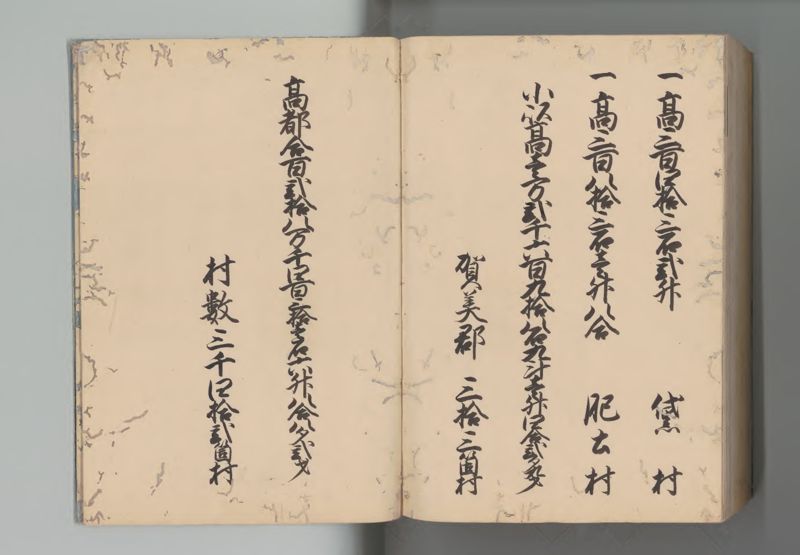 一高三百四拾三石弐斗 黛村
一高三百八拾三石壱斗八合 肥土村
小以高壱万弐千六百九拾八石九斗壱升四合弐勺
賀美郡 三拾三箇村
高都合百弐拾八万千四百三拾壱石六斗八合八夕弐才
村數三千四拾弐箇村